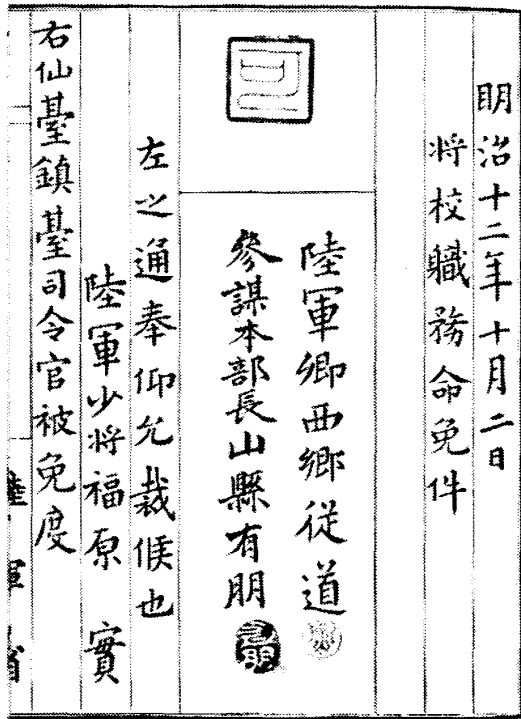 明治十二年十月二日
将校職務命免件
陸軍卿西郷従道
参謀本部長山縣有朋
左之通奉仰允裁候也
陸軍少将福原 實
右仙臺鎮臺司令官被免度
陸軍省